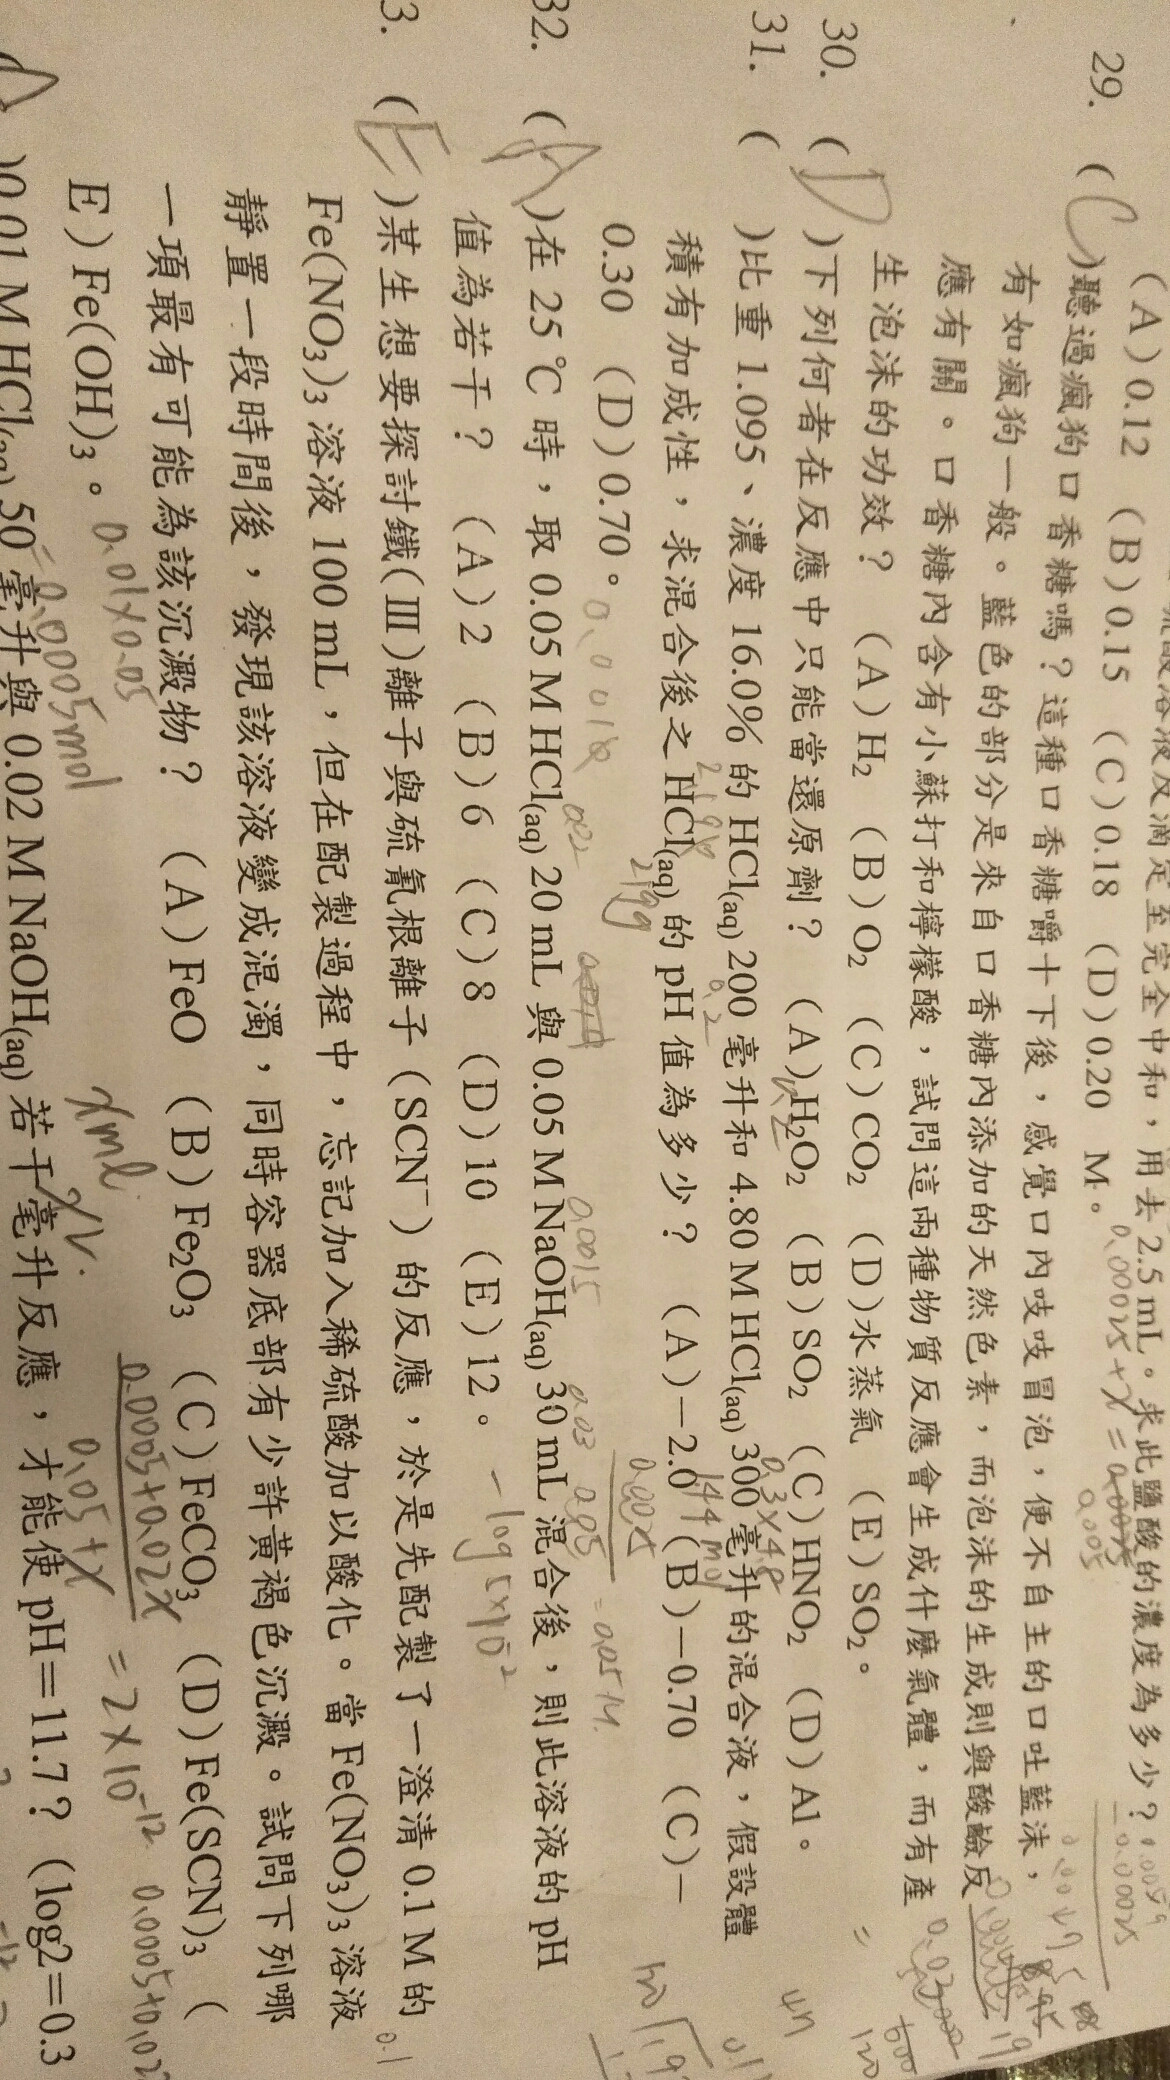 硫酸溶液反滴定至完全中和，用去2.5 mL。求此鹽酸的濃度為多少？
(A) 0.12 (B) 0.15 (C) 0.18 (D) 0.20 M。
29. (C)聽過瘋狗口香糖嗎？這種口香糖嚼十下後，感覺口內吱吱冒泡，便不自主的口吐藍沫，
有如瘋狗一般。藍色的部分是來自口香糖內添加的天然色素，而泡沫的生成則與酸鹼反
應有關。口香糖內含有小蘇打和檸檬酸，試問這兩種物質反應會生成什麼氣體，而有產
生泡沫的功效？ (A) H₂ (B) O₂ (C) CO₂ (D)水蒸氣 (E) SO₂。
30. (D)下列何者在反應中只能當還原劑？ (A) H₂O₂ (B) SO₂ (C) HNO₂ (D) Al。
31. ( )比重 1.095、濃度 16.0% 的 HCl(aq) 200 毫升和 4.80 M HCl(aq) 300 毫升的混合液，假設體
積有加成性，求混合後之 HCl(aq) 的 pH 值為多少？ (A)－2.0 (B)－0.70 (C)－
0.30 (D) 0.70。
32. (A)在 25 ℃ 時，取 0.05 M HCl(aq) 20 mL 與 0.05 M NaOH(aq) 30 mL 混合後，則此溶液的 pH
值為若干？ (A) 2 (B) 6 (C) 8 (D) 10 (E) 12。
3. (E)某生想要探討鐵(Ⅲ)離子與硫氰根離子（SCN⁻）的反應，於是先配製了一澄清 0.1 M 的
Fe(NO₃)₃ 溶液 100 mL，但在配製過程中，忘記加入稀硫酸加以酸化。當 Fe(NO₃)₃ 溶液
靜置一段時間後，發現該溶液變成混濁，同時容器底部有少許黃褐色沉澱。試問下列哪
一項最有可能為該沉澱物？ (A) FeO (B) Fe₂O₃ (C) FeCO₃ (D) Fe(SCN)₃ (
E) Fe(OH)₃。
0.01×0.05
=0.0005mol
xml
0.0005+0.02x
0.05+x
=2×10⁻¹²
-log5×10⁻²
)0.01 M HCl(aq) 50 毫升與 0.02 M NaOH(aq) 若干毫升反應，才能使 pH＝11.7？ (log2＝0.3